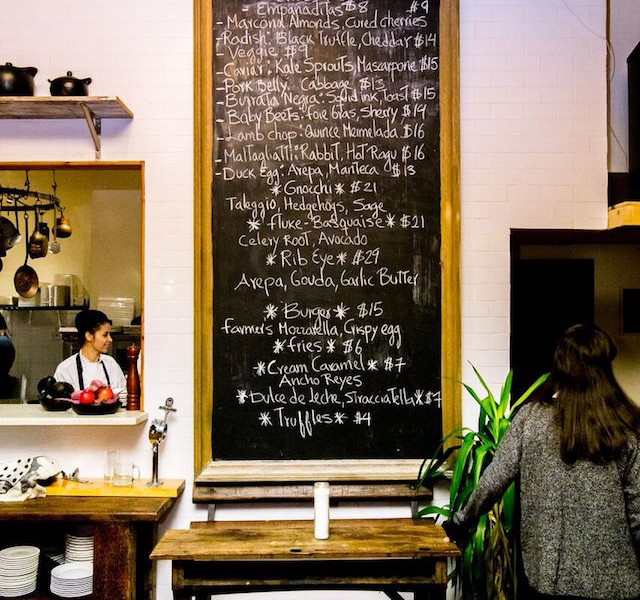 = Empanaditas $8 $9
- Marcona Almonds, Cured cherries
- Radish: Black Truffle, Cheddar $14
Veggie $9
- Caviar: Kale Sprouts, Mascarpone $15
- Pork Belly: Cabbage $13
- Burrata Negra: Squid ink, Toast $15
- Baby Beets: Foie Gras, Sherry $14
- Lamb chop: Quince Memelada $16
- Maltagliatti: Rabbit, Hot Ragu $16
- Duck Egg: Arepa, Manteca $13
* Gnocchi * $21
Taleggio, Hedgehogs, Sage
* Fluke - Basquaise * $21
Celery Root, Avocado
* Rib Eye * $29
Arepa, Gouda, Garlic Butter
* Burger * $15
Farmers Mozzarella, Crispy egg
* fries * $6
* Cream Caramel * $7
Ancho Reyes
* Dulce de Leche, Stracciatella * $7
* Truffles * $4